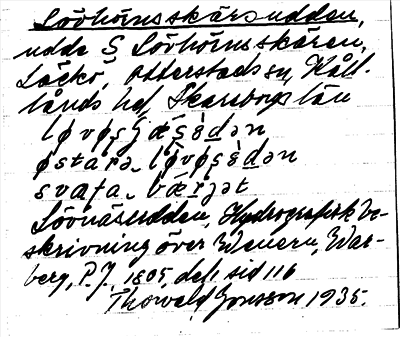 Lövhörnsskärsudden,
udde S Lövhörnsskären,
Läckö, Otterstads sn, Kål-
lands hd, Skaraborgs län
løvøʂʃǽʂɐ̀dən
østarə. lø̄vøʂɐ̀dən
svafa. bǽrjət
Lövnäsudden, Hydrografisk be-
skrivning över Wenern, War-
berg, P. J. 1805, del 1 sid 116
Thorvald Jonsson 1935.